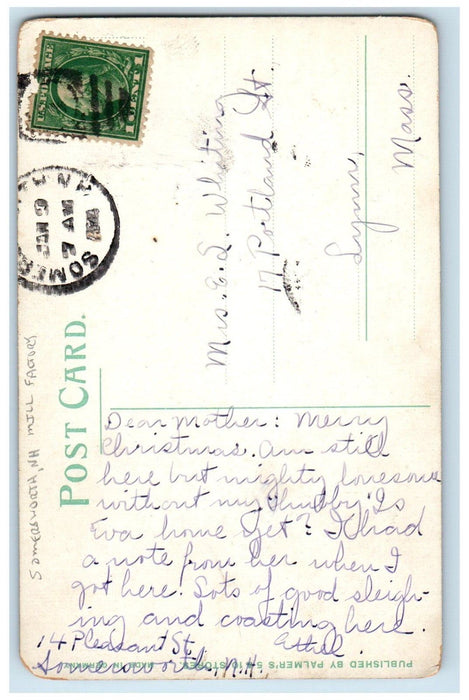 U.S. POSTAGE
1 CENT 1
SOMERS
N.H.
JAN 9
7 AM
Mrs. E. L. Whiting
17 Portland St.
Lynn,
Mass.
SOMERSWORTH, NH MILL FACTORY
POST CARD.
Dear Mother: Merry
Christmas. Am still
here but mighty lonesome
without my hubby. Is
Eva home yet? I had
a note from her when I
got here. Lots of good sleigh-
ing and coasting here.
14 Pleasant St. Ethel
Somersworth, N.H.
PUBLISHED BY PALMER'S 5 & 10¢ STORES. MADE IN GERMANY